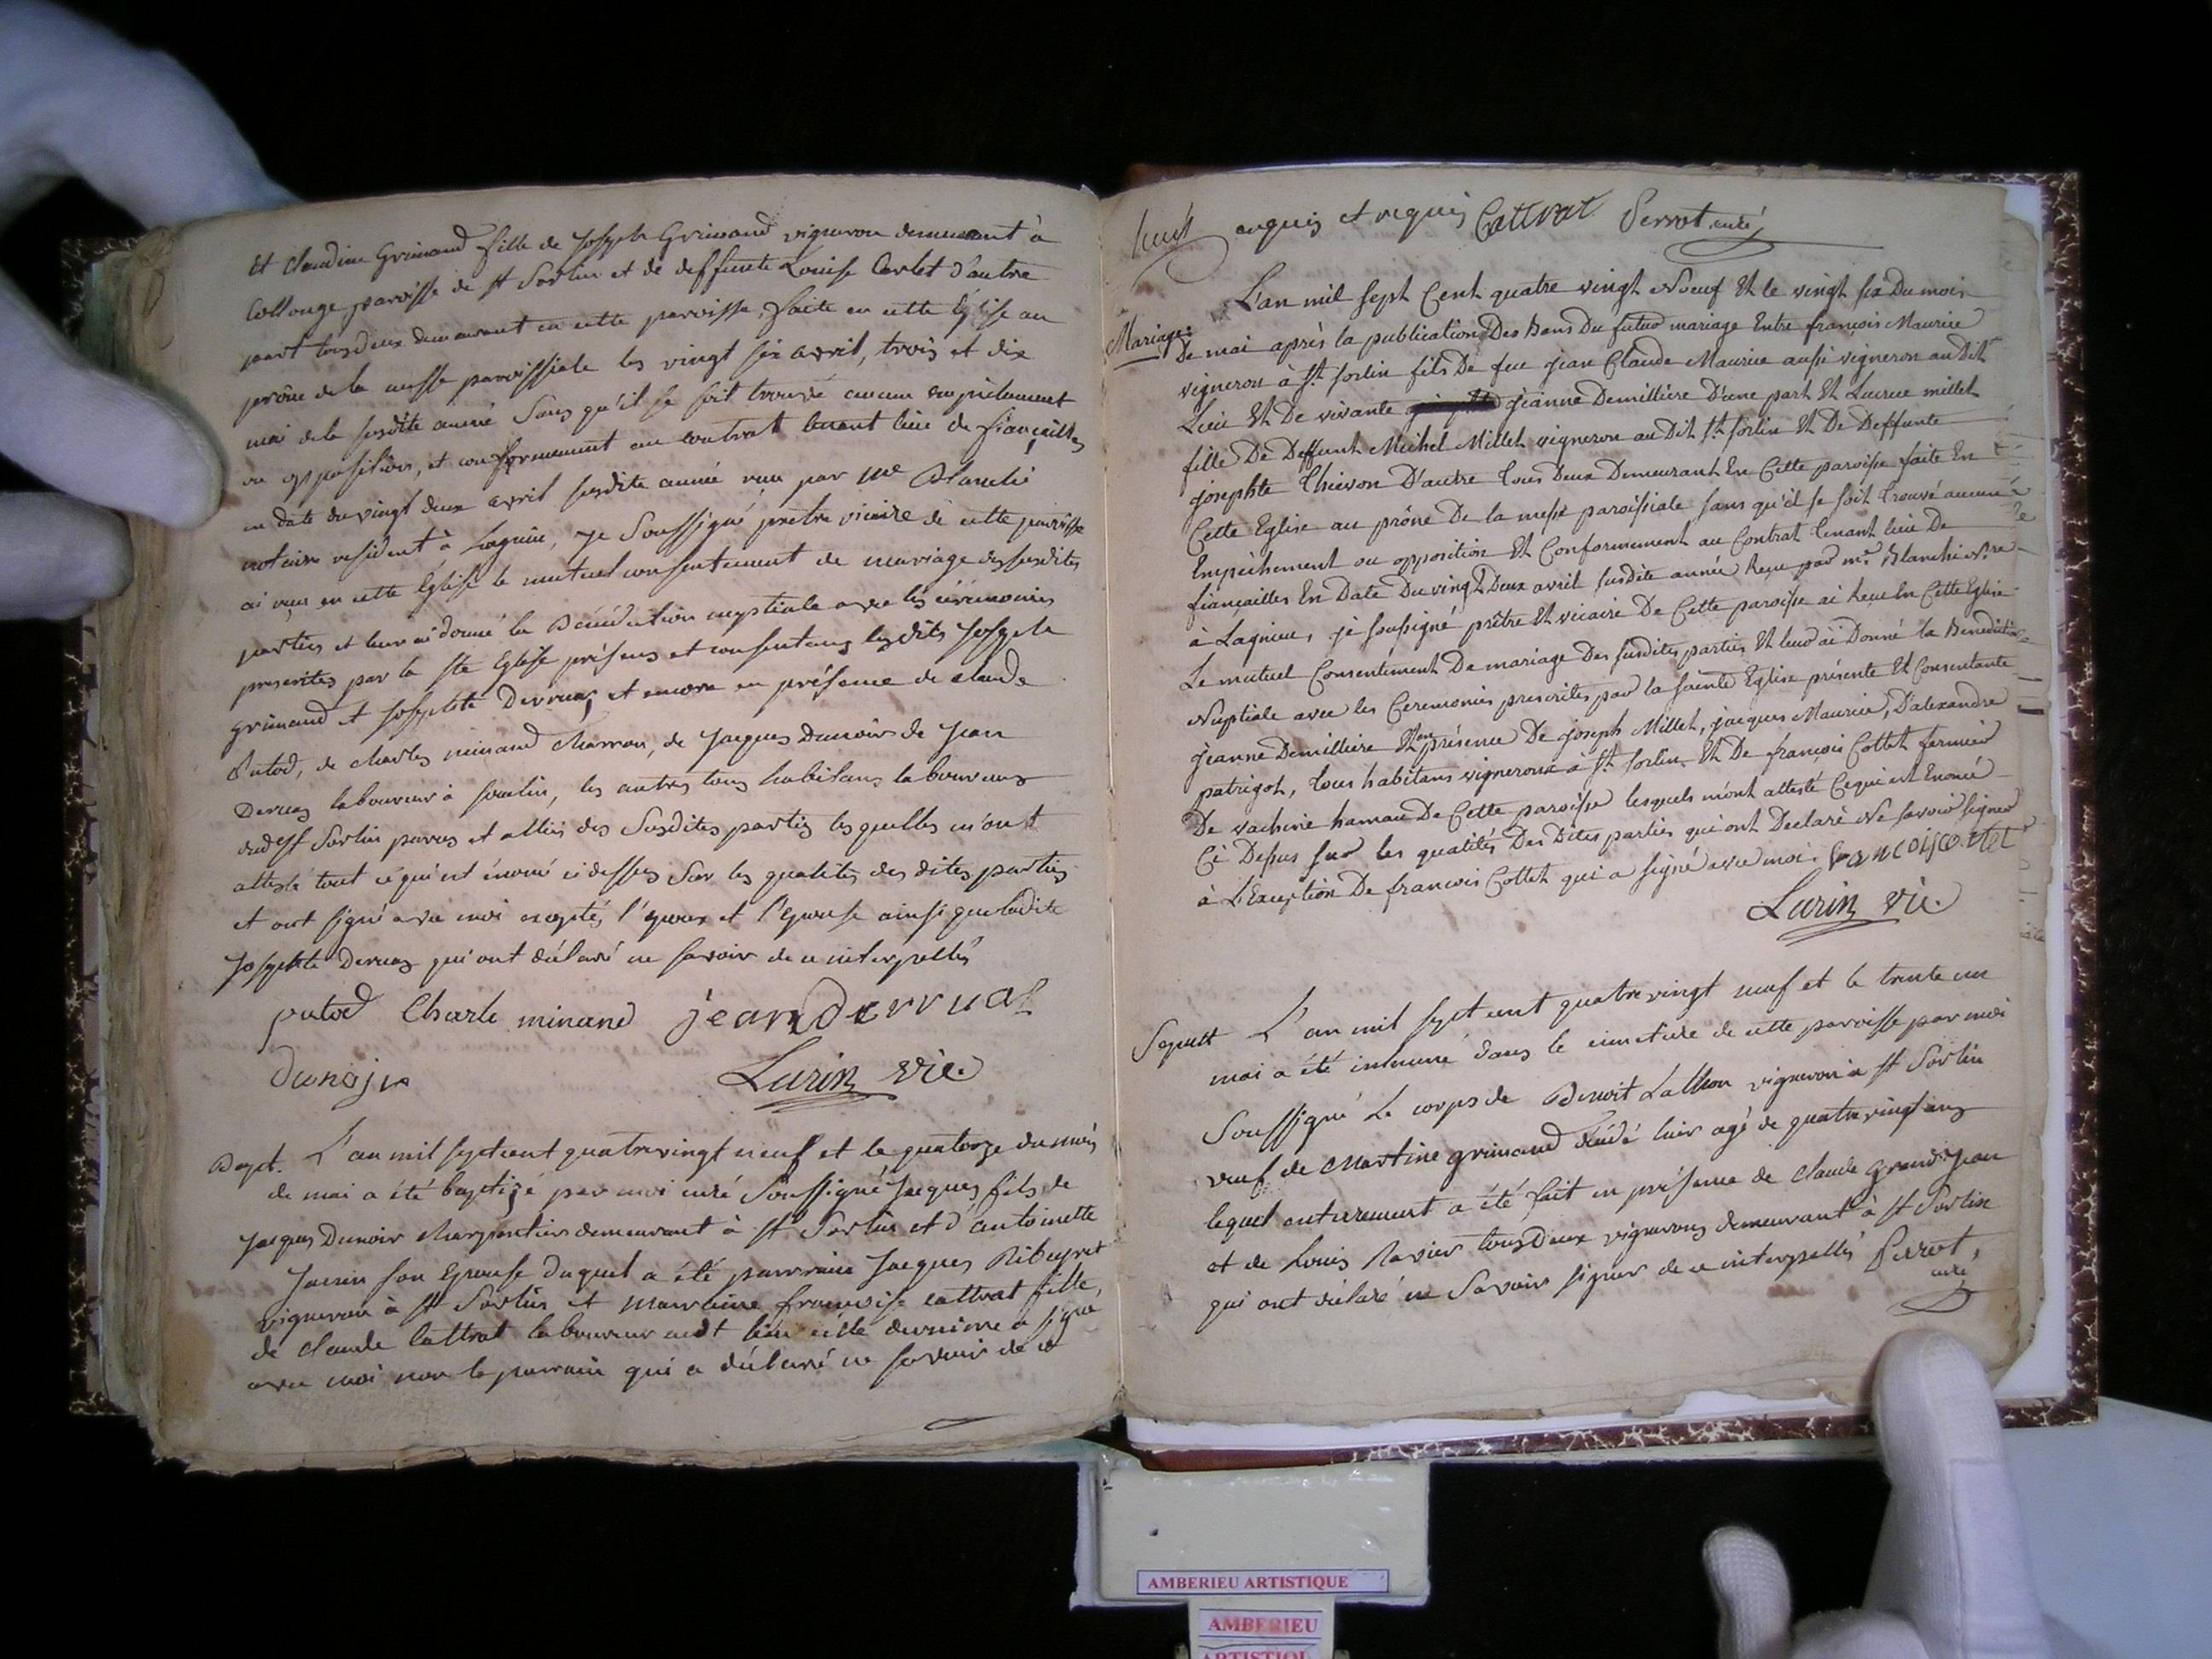 Et Claudine Grimand fille de Joseph Grimand vigneron demeurant à
Collonge paroisse de st Sorlin et de deffunte Louise Carlet d'autre
part tous deux demeurant en cette paroisse, faite en cette Eglise au
prône de la messe paroissiale les vingt six avril, trois et dix
mai de la susdite année Sans qu'il se soit trouvé aucun empêchement
ou opposition, et conformement au contrat tenant lieu de fiançailles
en date du vingt deux avril susdite année reçu par me Blanchi
notaire resident à Lagnieu, je Soussigné pretre vicaire de cette paroisse
ai reçu en cette Église le mutuel consentement de mariage des susdites
parties et leur ai donné la Bénédiction nuptiale avec les cérémonies
prescrites par la ste Eglise présens et consentans lesdits Joseph
grimand et Josephte Dervuaz et encore en présence de claude
Putod, de charles minand charron, de Jacques Dunoir de Jean
Dervuaz laboureur à soulin, les autres tous habitans laboureurs
dudt st Sorlin parens et alliés des Susdites parties lesquelles m'ont
attesté tout ce qui est énoncé ci dessus Sur les qualités des dites parties
et ont signé avec moi exceptés l'epoux et l'epouse ainsi que ladite
Josephte Dervuaz qui ont déclaré ne savoir de ce interpellés
putod Charle minand jean Dervuaz
dunojr Lurin vic.
Bapt. L'an mil sept cent quatre vingt neuf et le quatorze du mois
de mai a été baptizé par moi curé Soussigné Jacques fils de
Jacques Dunoir charpentier demeurant à st Sorlin et d'antoinette
Janin son Epouse duquel a été parrain Jacques Ribeyret
vigneron à st Sorlin et marraine françoise cattrat fille,
de claude Cattrat laboureur audt lieu cette derniere a signé
avec moi non le parrain qui a déclaré ne savoir de ce
enquis et requis Cattrat Perrot curé
L'an mil sept Cent quatre vingt Noeuf Et le vingt six Du mois
Mariage: De mai après la publication Des bans Du futur mariage Entre françois Maurice
vigneron à St. Sorlin fils De feu jean Claude Maurice aussi vigneron audit
Lieu Et De vivante jeanne Demilliere D'une part Et Lucrece millet
fille De Deffunt Michel Millet vigneron au Dit St. Sorlin Et De Deffunte
josephte Thievon D'autre Tous Deux Demeurant En Cette paroisse faite En
Cette Eglise au prône De la messe paroissiale sans qu'il se soit trouvé aucun
Empêchement ou opposition Et Conformement au Contrat tenant lieu De
fiançailles En Date Du vingt Deux avril susdite année Reçu par me. Blanchi Nre
à Lagnieu, je soussigné prêtre Et vicaire De Cette paroisse ai Reçu En Cette Eglise
Le mutuel Consentement De mariage Des susdites parties Et leur ai Donné la Benediction
Nuptiale avec les Ceremonies prescrites par la sainte Eglise présente Et Consentante
jeanne Demilliere Et en présence De joseph Millet, jacques Maurice, D'alexandre
patrigot, Tous habitans vignerons a St. Sorlin. Et De françois Cottet fermier
De vachirie hamau De Cette paroisse lesquels m'ont attesté Ce qui est Enoncé
Ci Dessus sur les qualités Des Dites parties qui ont Declaré Ne savoir signer
à L'Exception De francois Cottet qui a signé avec moi. francois cottet
Lurin vic.
Sepult L'an mil sept cent quatre vingt neuf et le trente un
mai a été inhumé dans le cimetiere de cette paroisse par moi
Soussigné Le corps de Benoit Lathon vigneron à st Sorlin
veuf de Martine grimand décédé hier agé de quatre vingt ans
lequel enterrement a été fait en présence de claude Grandjean
et de Louis Ravier tous deux vignerons demeurant à st Sorlin
qui ont déclaré ne Savoir signer de ce interpellés Perrot,
curé
AMBERIEU ARTISTIQUE
AMBERIEU
ARTISTIQUE